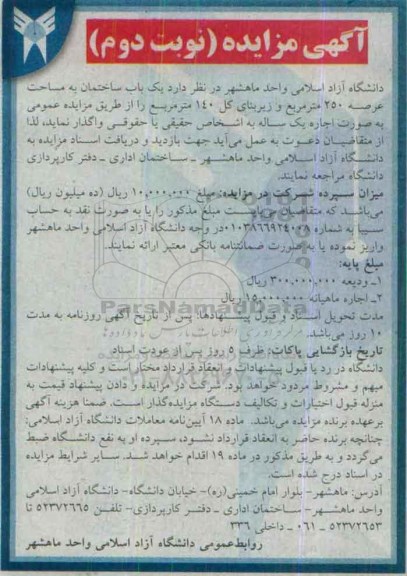 آگهی مزایده (نوبت دوم)
دانشگاه آزاد اسلامی واحد ماهشهر در نظر دارد یک باب ساختمان به مساحت
عرصه ۲۵۰ مترمربع و زیربنای کل ۱۴۰ مترمربع را از طریق مزایده عمومی
به صورت اجاره یک ساله به اشخاص حقیقی یا حقوقی واگذار نماید، لذا
از متقاضیان دعوت به عمل می‌آید جهت بازدید و دریافت اسناد مزایده به
دانشگاه آزاد اسلامی واحد ماهشهر ـ ساختمان اداری ـ دفتر کارپردازی
دانشگاه مراجعه نمایند.
میزان سپرده شرکت در مزایده: مبلغ ۱۰,۰۰۰,۰۰۰ ریال (ده میلیون ریال)
می‌باشد که متقاضیان می‌بایست مبلغ مذکور را یا به صورت نقد به حساب
سیبا به شماره ۰۱۰۳۸۶۶۹۲۴۰۰۹ در وجه دانشگاه آزاد اسلامی واحد ماهشهر
واریز نموده یا به صورت ضمانتنامه بانکی معتبر ارائه نمایند.
مبلغ پایه:
۱ـ ودیعه ۳۰۰,۰۰۰,۰۰۰ ریال
۲ـ اجاره ماهیانه ۱۵,۰۰۰,۰۰۰ ریال
ParsNamadData
مدت تحویل اسناد و قبول پیشنهادها: پس از تاریخ آگهی روزنامه به مدت
۱۰ روز می‌باشد.
تاریخ بازگشایی پاکات: ظرف ۵ روز پس از عودت اسناد
دانشگاه در رد یا قبول پیشنهادات و انعقاد قرارداد مختار است و کلیه پیشنهادات
مبهم و مشروط مردود خواهد بود. شرکت در مزایده و دادن پیشنهاد قیمت به
منزله قبول اختیارات و تکالیف دستگاه مزایده‌گذار است. ضمنا هزینه آگهی
برعهده برنده مزایده می‌باشد. ماده ۱۸ آیین‌نامه معاملات دانشگاه آزاد اسلامی:
چنانچه برنده حاضر به انعقاد قرارداد نشود، سپرده او به نفع دانشگاه ضبط
می‌گردد و به طریق مذکور در ماده ۱۹ اقدام خواهد شد. سایر شرایط مزایده
در اسناد درج شده است.
آدرس: ماهشهر- بلوار امام خمینی(ره)- خیابان دانشگاه- دانشگاه آزاد اسلامی
واحد ماهشهر- ساختمان اداری ـ دفتر کارپردازی- تلفن ۵۲۳۷۲۶۶۵ تا
۵۲۳۷۲۶۵۳ ـ ۰۶۱ ـ داخلی ۳۳۶
روابط‌عمومی دانشگاه آزاد اسلامی واحد ماهشهر